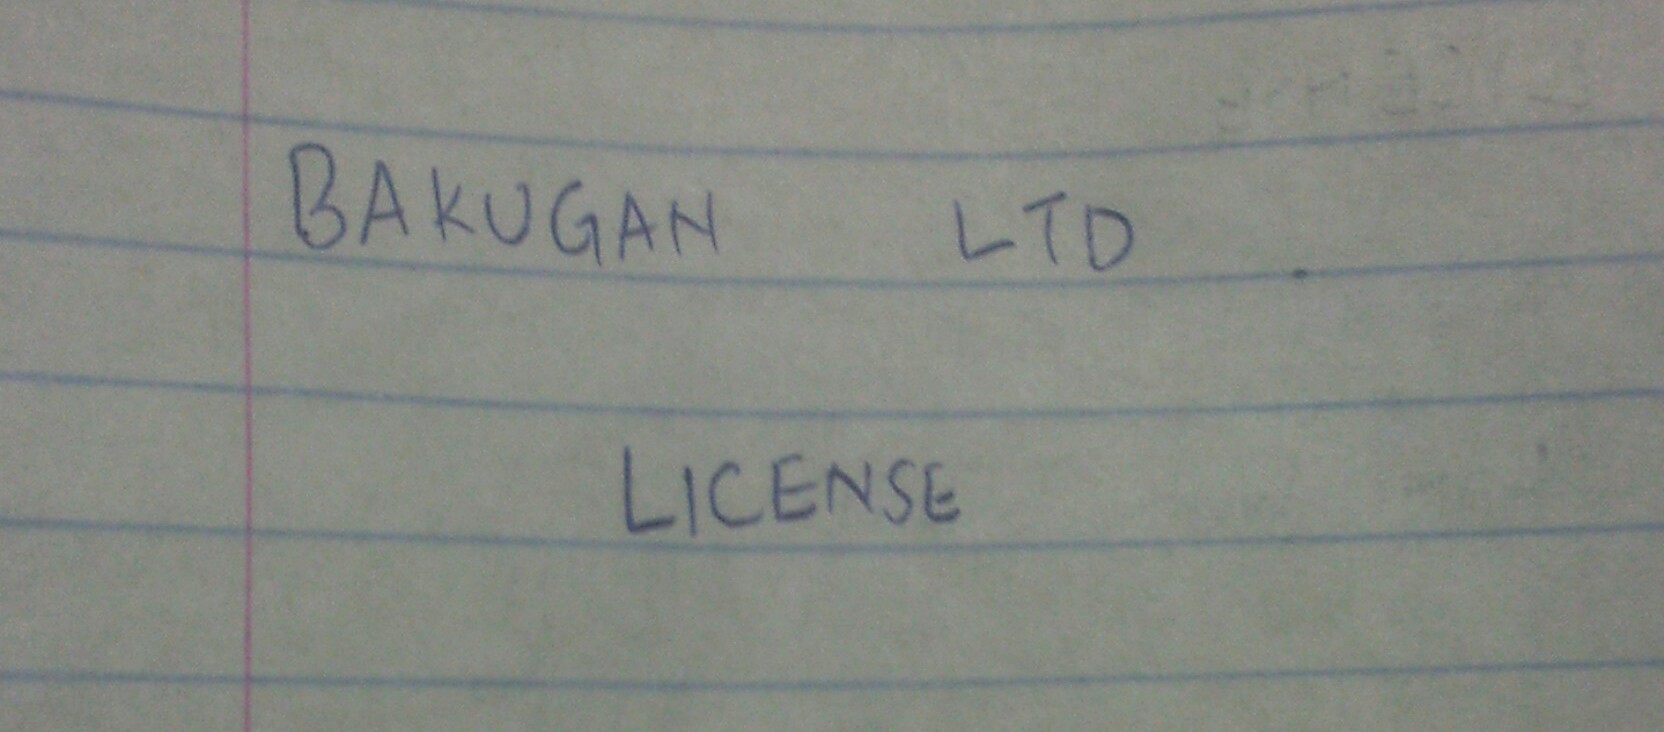 BAKUGAN LTD
LICENSE